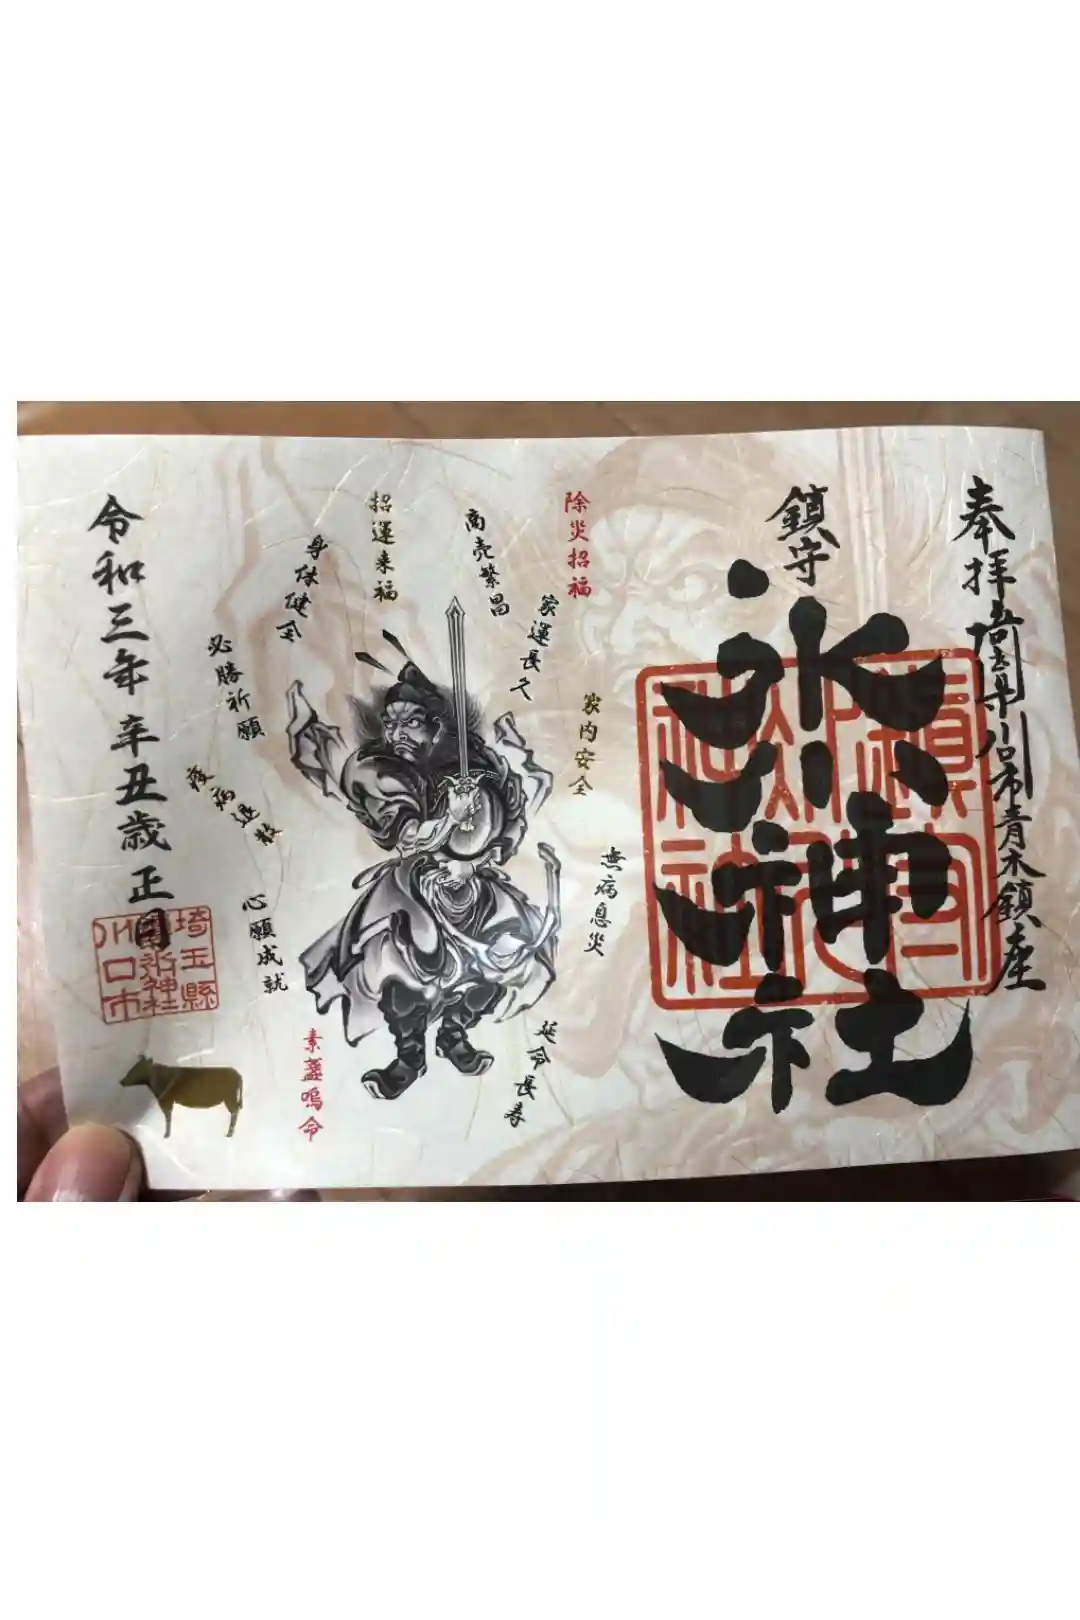 奉拝
埼玉県川口市青木鎮座
鎮守
氷川神社
鎮守氷川神社
除災招福
家内安全
無病息災
家運長久
商売繁昌
延命長寿
招運来福
身体健全
必勝祈願
疫病退散
心願成就
素盞嗚命
令和三年 辛丑歳 正月
埼玉縣
氷川神社
川口市